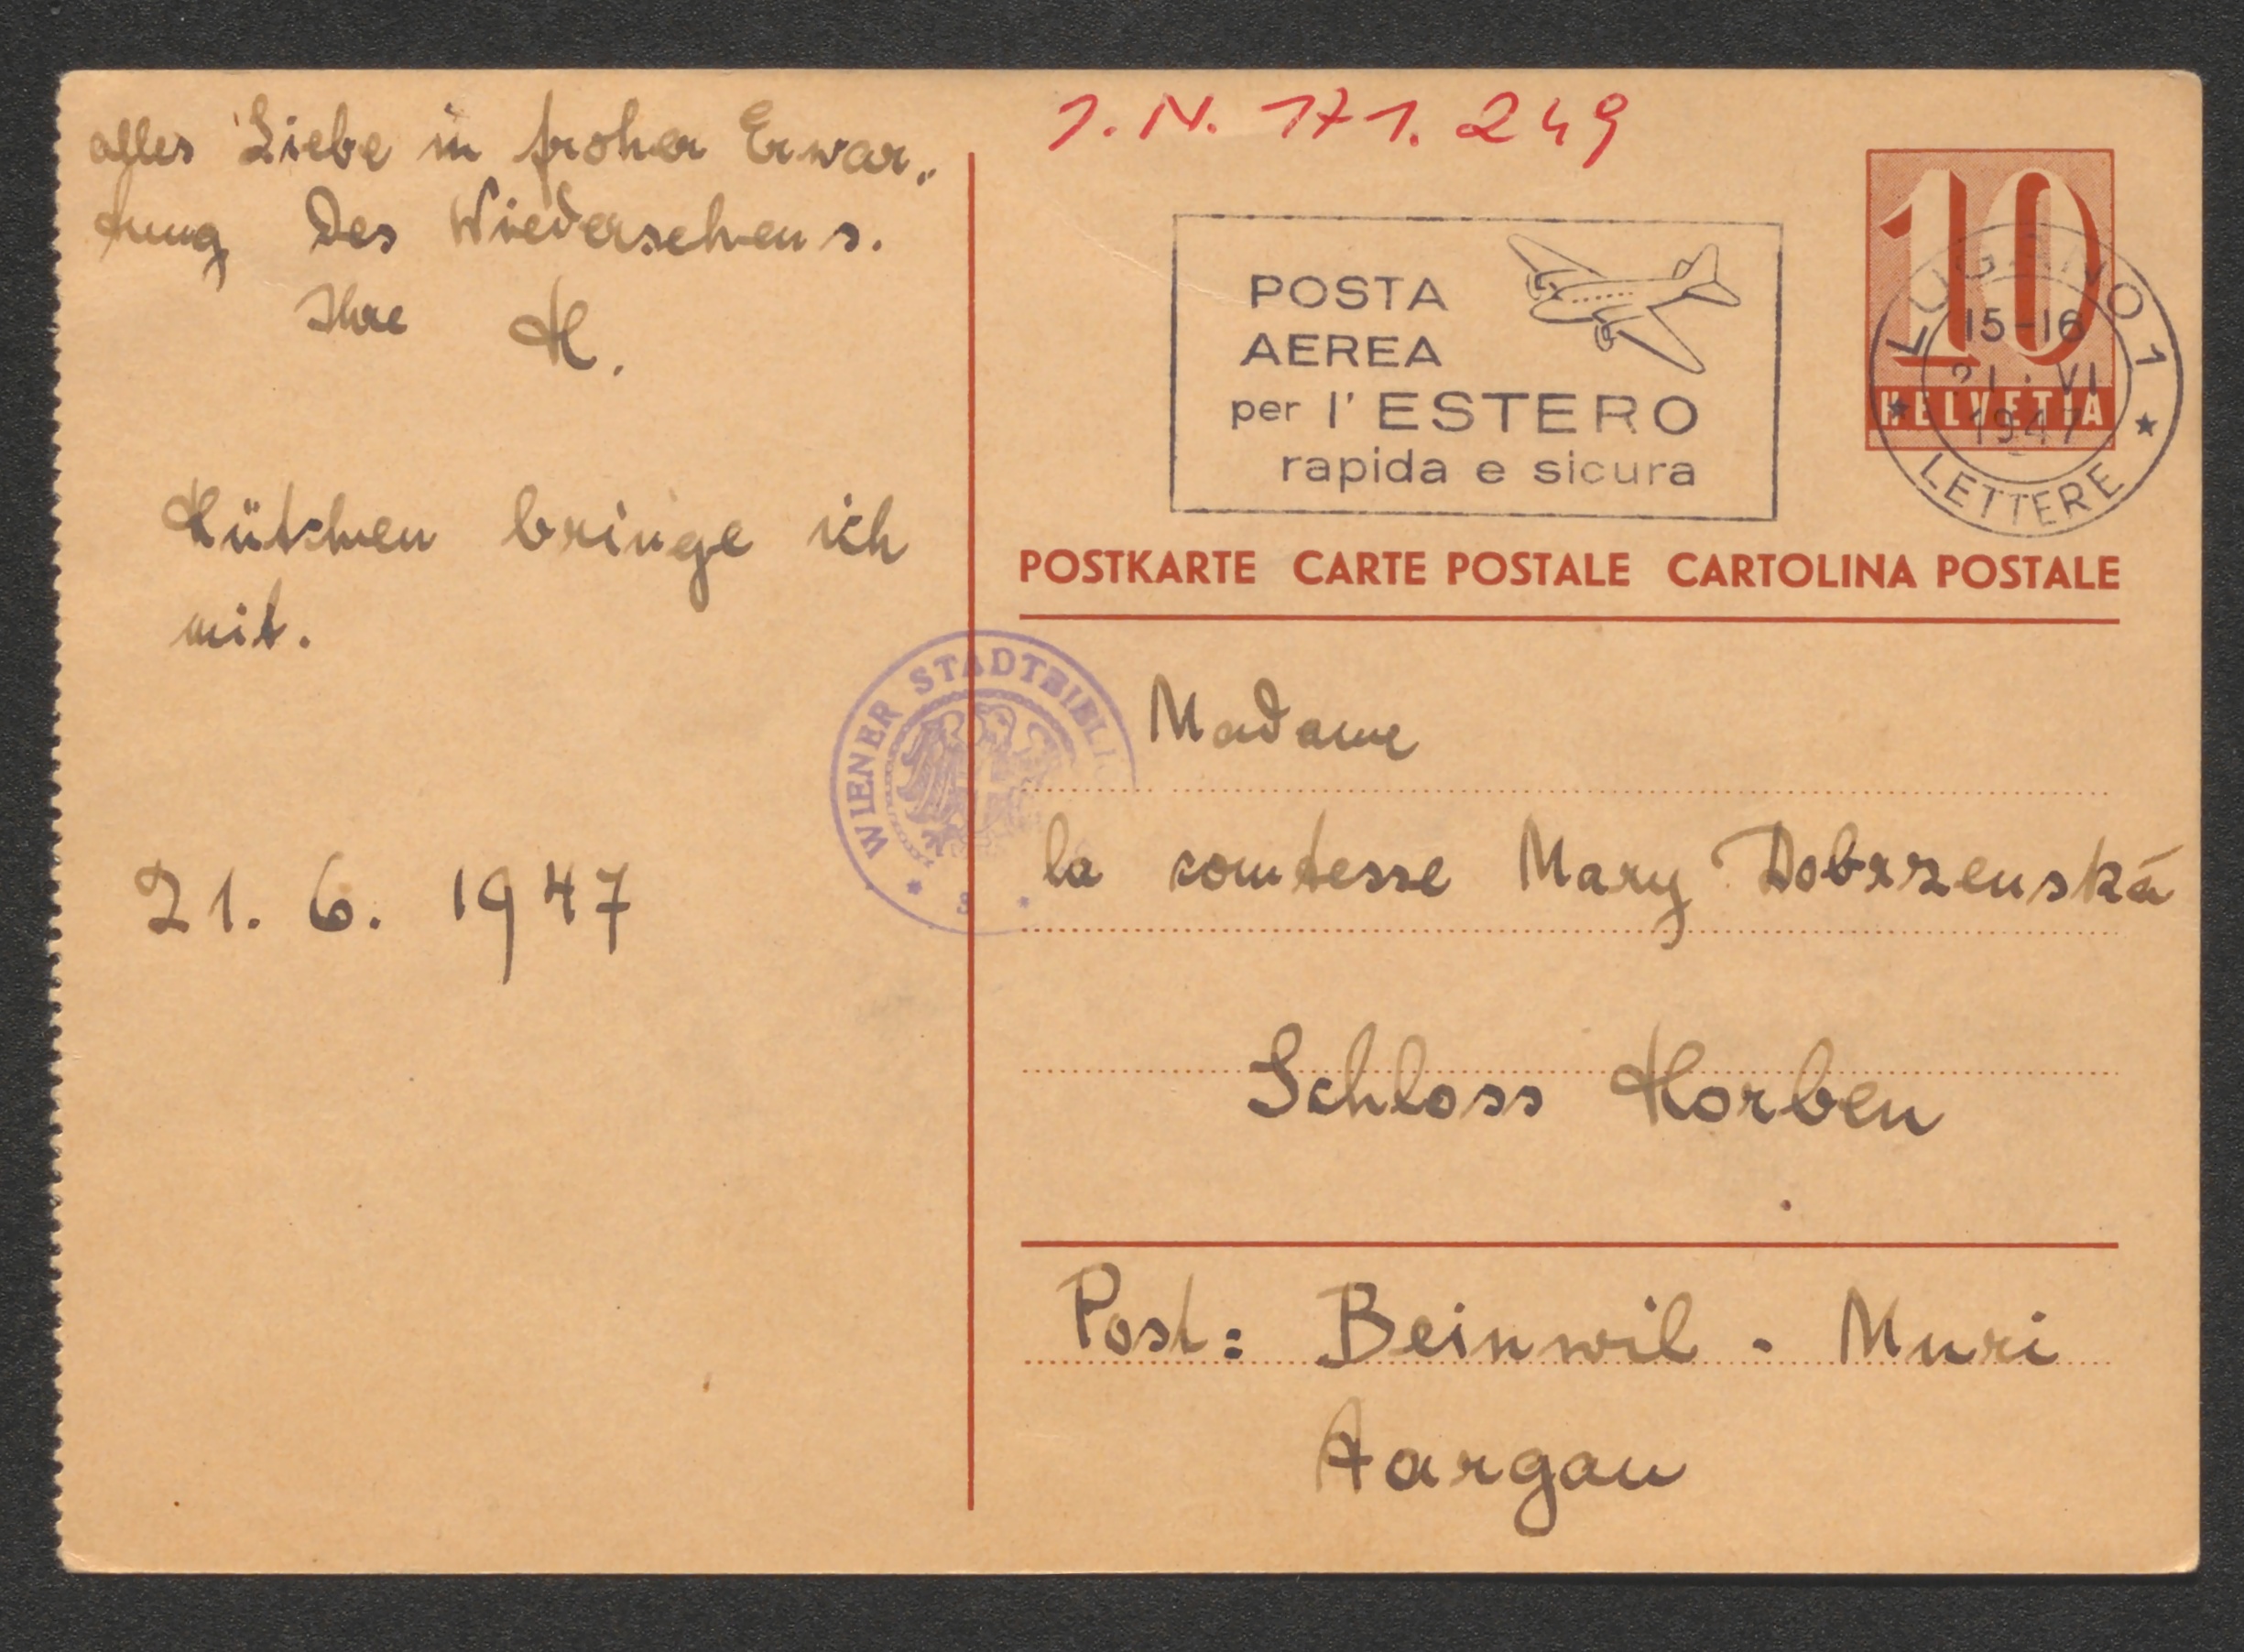 alles Liebe in froher Erwar„
tung des Wiedersehens.
Ihre H.
Hütchen bringe ich
mit.
21. 6. 1947
J. N. 171. 249
POSTA
AEREA
per l'ESTERO
rapida e sicura
10
HELVETIA
LUGANO 1
15-16
21. VI
1947
LETTERE
POSTKARTE CARTE POSTALE CARTOLINA POSTALE
WIENER STADTBIBLI
Madame
la comtesse Mary Dobrzenská
Schloss Horben
Post: Beinwil - Muri
Aargau